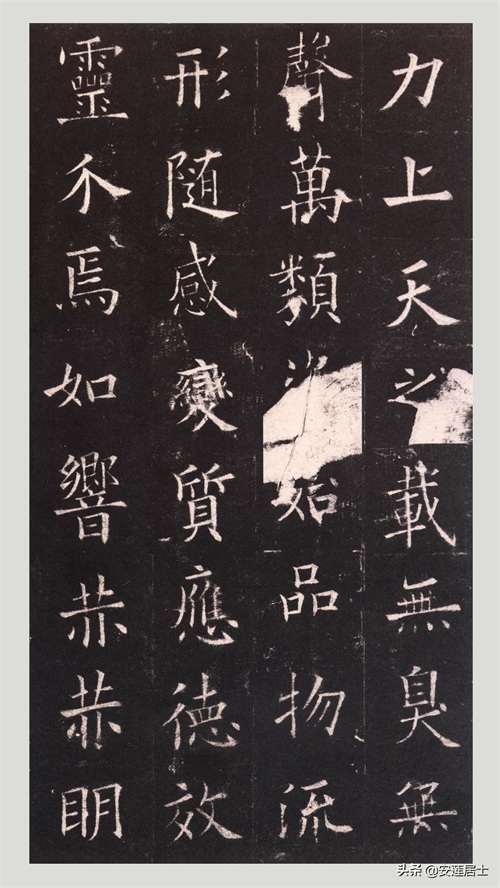 力上天之載無臭無
聲萬類始品物流
形随感變質應德效
靈介焉如響赫赫明
头条 @安莲居士